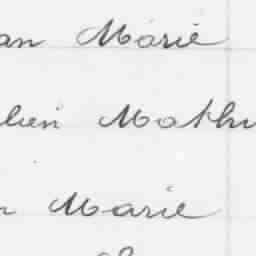 an Marie
lien Mathu
n Marie